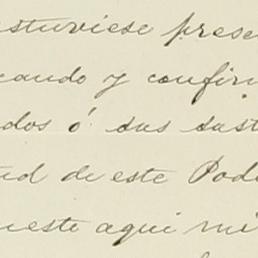 stuviese prese
cando y confir
dos ó sus sust
tud de este Pod
ueste aqui mi